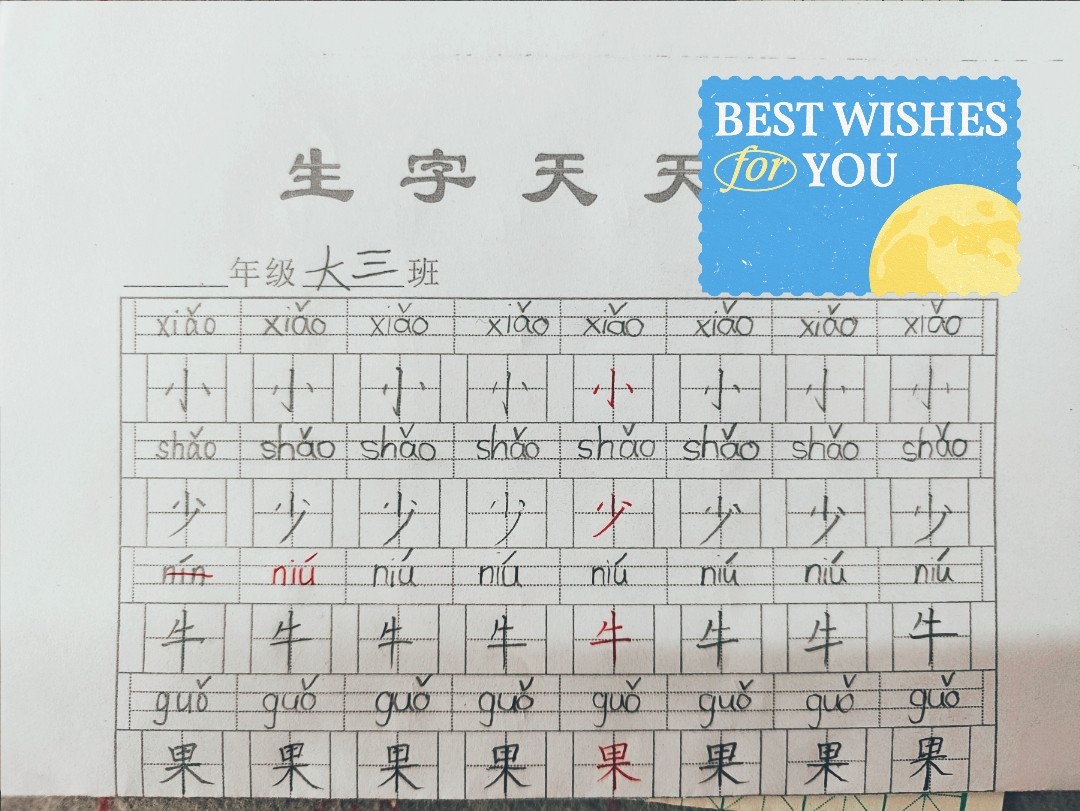 BEST WISHES
for YOU
生字天天
年级大三班
xiǎo xiǎo xiǎo xiǎo xiǎo xiǎo xiǎo xiǎo
小 小 小 小 小 小 小 小
shǎo shǎo shǎo shǎo shǎo shǎo shǎo shǎo
少 少 少 少 少 少 少 少
nín niú niú niú niú niú niú niú
牛 牛 牛 牛 牛 牛 牛 牛
guǒ guǒ guǒ guǒ guǒ guǒ guǒ guǒ
果 果 果 果 果 果 果 果